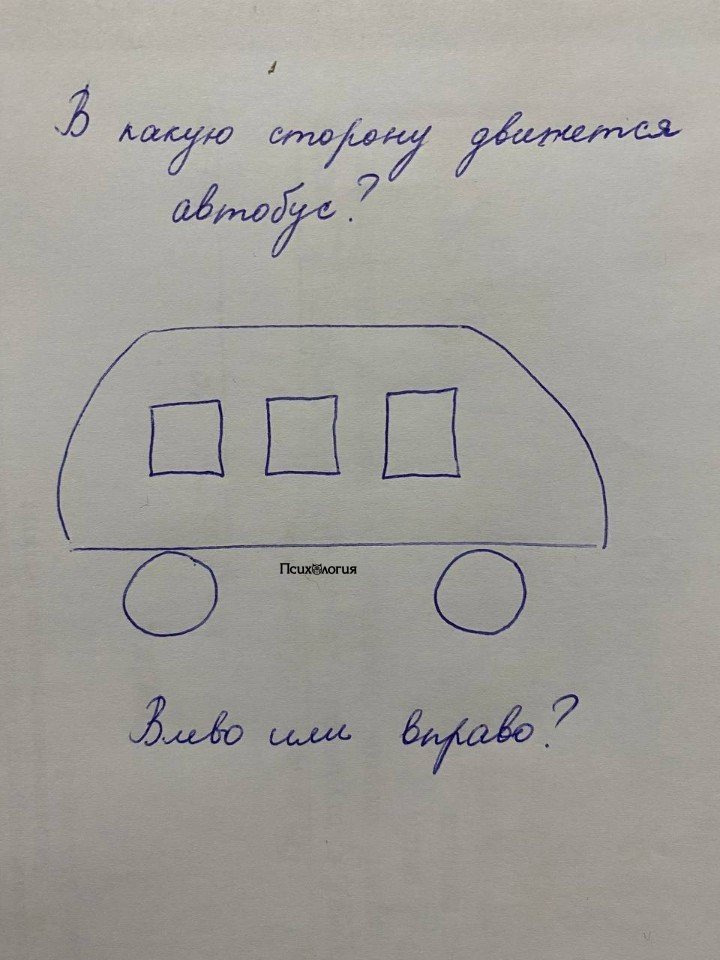 В какую сторону движется
автобус?
Психология
Влево или вправо?